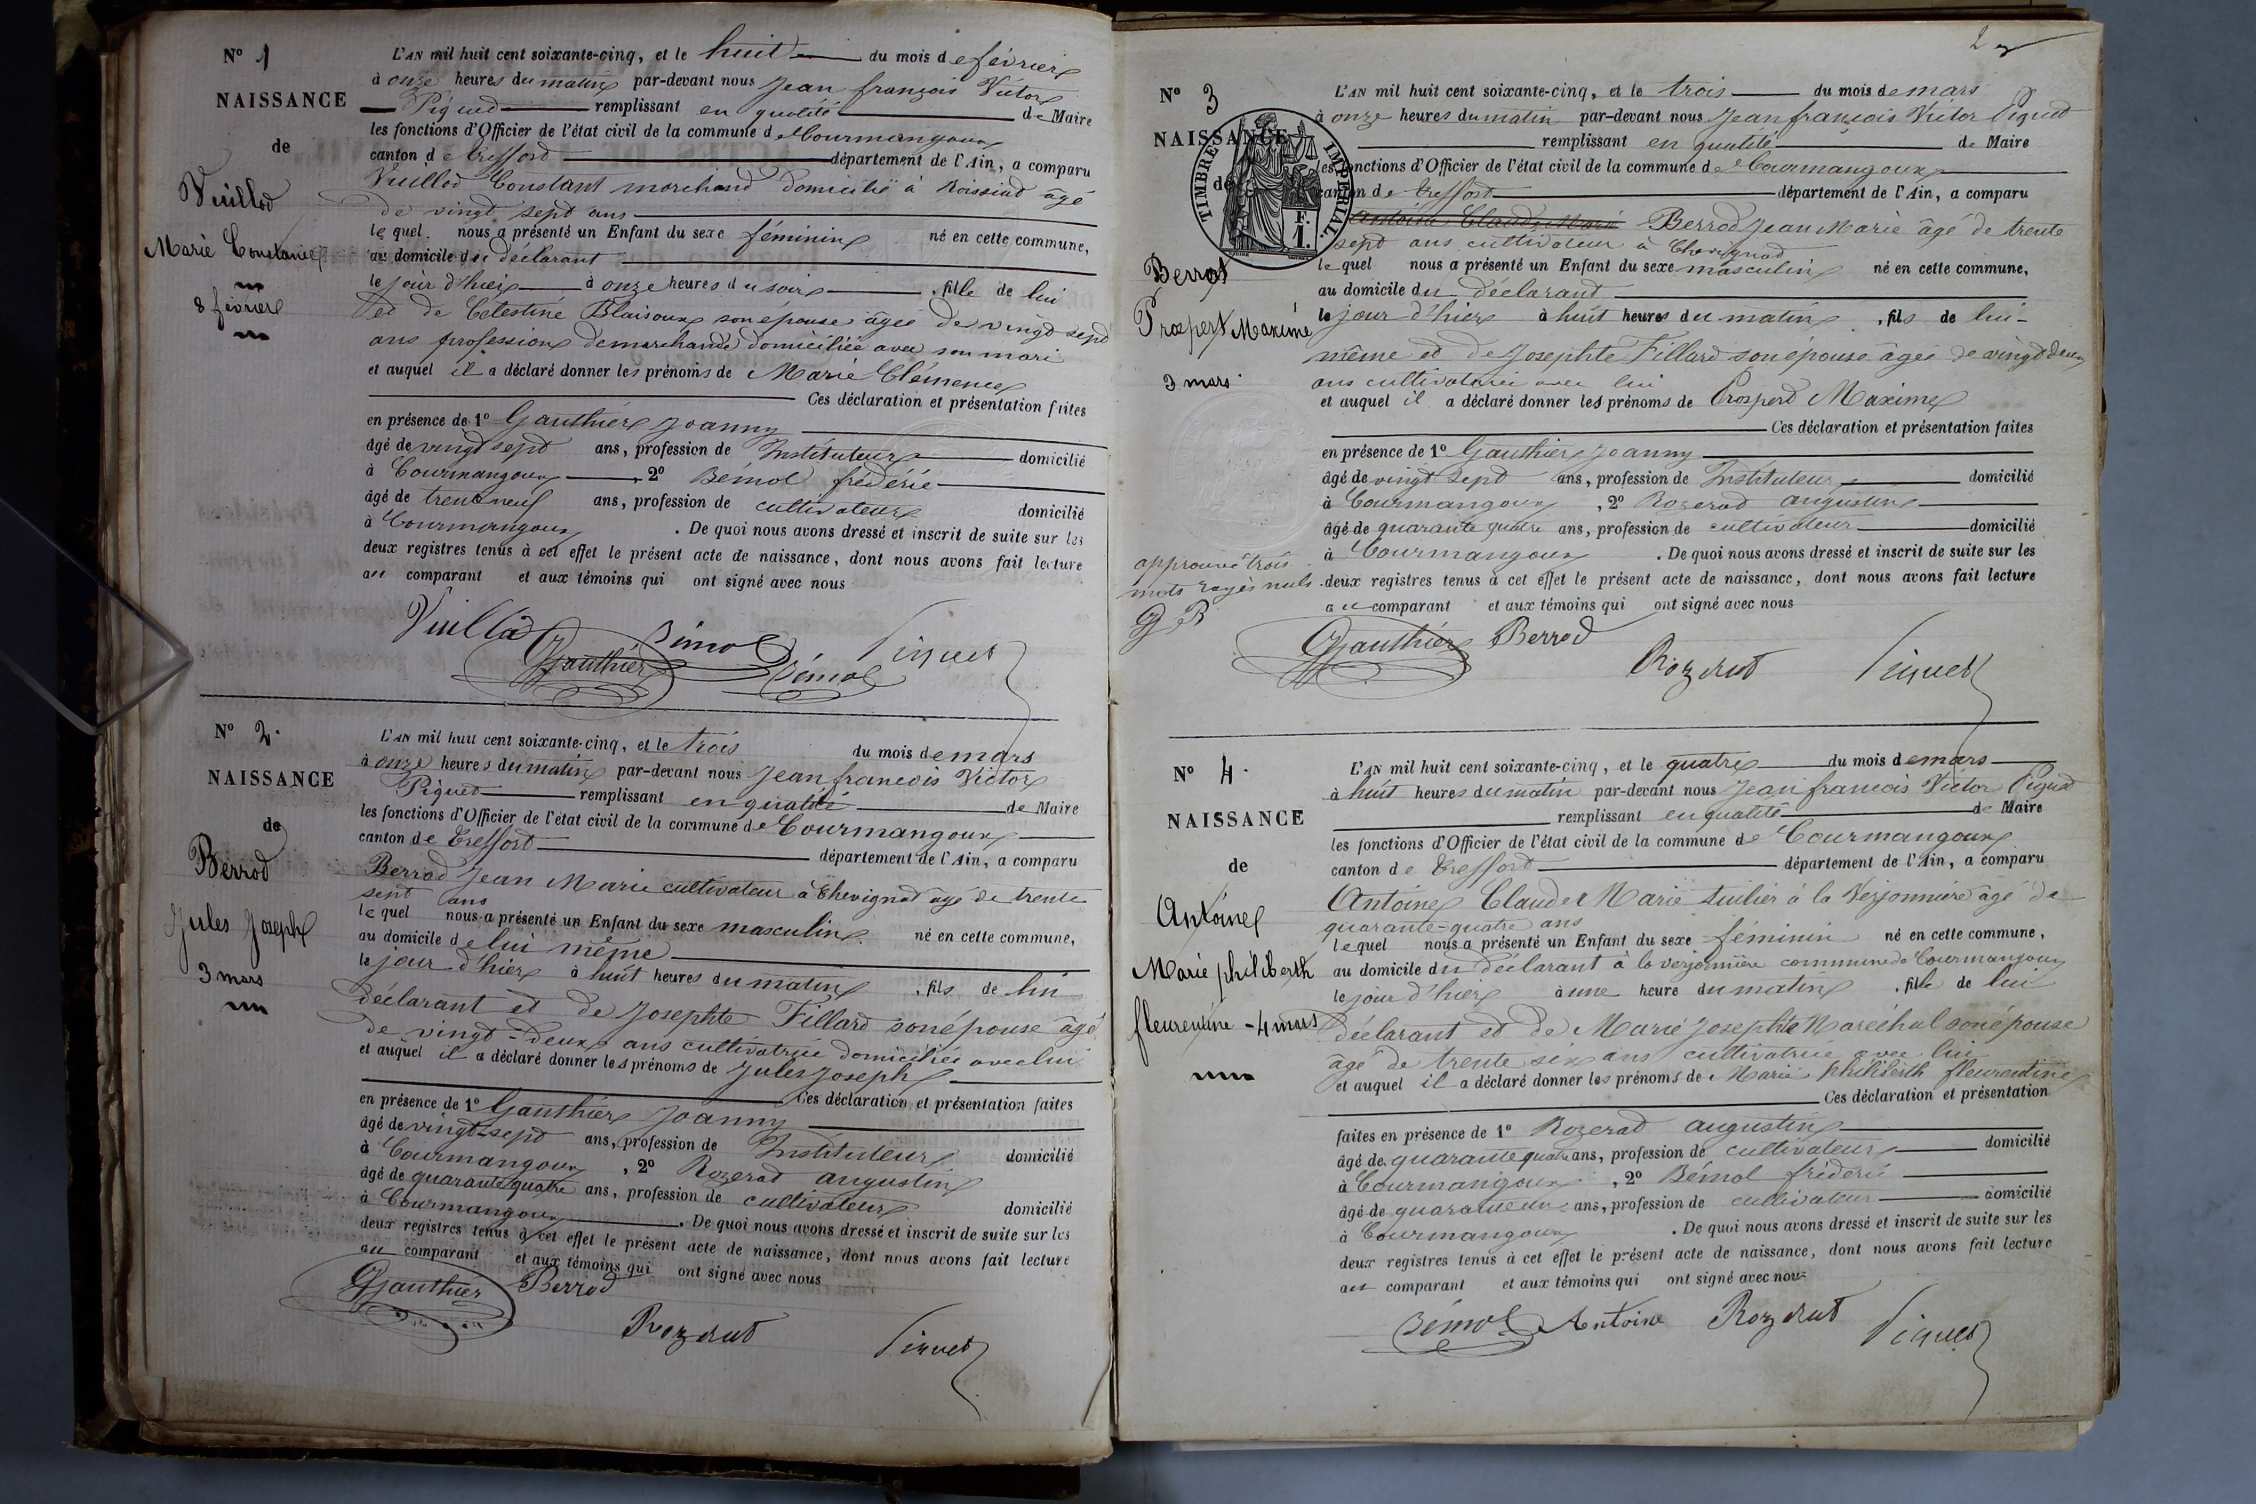 Nº 1
NAISSANCE
de
Vuillod
Marie Constance
8 février
L'AN mil huit cent soixante-cinq, et le huit du mois de février
à onze heures du matin par-devant nous Jean françois Victor
Piquet remplissant en qualité de Maire
les fonctions d'Officier de l'état civil de la commune de Courmangoux
canton de Treffort département de l'Ain, a comparu
Vuillod Constant marchand domicilié à Roissiad âgé
de vingt sept ans
lequel nous a présenté un Enfant du sexe féminin né en cette commune,
au domicile du déclarant
le jour d'hier à onze heures du soir , fille de lui
et de Célestine Blaisoux son épouse âgée de vingt sept
ans profession de marchande domiciliée avec son mari
et auquel il a déclaré donner les prénoms de Marie Clémence
Ces déclaration et présentation faites
en présence de 1º Gauthier Joanny
âgé de vingt sept ans, profession de Instituteur domicilié
à Courmangoux , 2º Bémol frédéric
âgé de trente neuf ans, profession de cultivateur domicilié
à Courmangoux . De quoi nous avons dressé et inscrit de suite sur les
deux registres tenus à cet effet le présent acte de naissance, dont nous avons fait lecture
au comparant et aux témoins qui ont signé avec nous
Vuillod Bémol Piquet
Gauthier Bémol
Nº 2.
NAISSANCE
de
Berrod
Jules Joseph
3 mars
L'AN mil huit cent soixante-cinq, et le trois du mois de mars
à onze heures du matin par-devant nous Jean francois Victor
Piquet remplissant en qualité de Maire
les fonctions d'Officier de l'état civil de la commune de Courmangoux
canton de Treffort département de l'Ain, a comparu
Berrod Jean Marie cultivateur à Chevignat âgé de trente
sept ans
lequel nous a présenté un Enfant du sexe masculin né en cette commune,
au domicile de lui même
le jour d'hier à huit heures du matin , fils de lui
déclarant et de Josephte Fillard son épouse âgé
de vingt-deux ans cultivatrice domiciliée avec lui
et auquel il a déclaré donner les prénoms de Jules Joseph
Ces déclaration et présentation faites
en présence de 1º Gauthier Joanny
âgé de vingt-sept ans, profession de Instituteur domicilié
à Courmangoux , 2º Rozerad augustin
âgé de quarante quatre ans, profession de cultivateur domicilié
à Courmangoux . De quoi nous avons dressé et inscrit de suite sur les
deux registres tenus à cet effet le présent acte de naissance, dont nous avons fait lecture
au comparant et aux témoins qui ont signé avec nous
Gauthier Berrod
Rozerut Piquet
2
Nº 3
NAISSANCE
de
TIMBRE IMPERIAL
F.
1.
Berrod
Prospert Maxime
3 mars
approuvé trois
mots rayés nuls
L'AN mil huit cent soixante-cinq, et le trois du mois de mars
à onze heures du matin par-devant nous Jean francois Victor Piquet
remplissant en qualité de Maire
les fonctions d'Officier de l'état civil de la commune de Courmangoux
canton de Treffort département de l'Ain, a comparu
Antoine Claude Marie Berrod Jean Marie âgé de trente
sept ans cultivateur à Chevignad
lequel nous a présenté un Enfant du sexe masculin né en cette commune,
au domicile du déclarant
le jour d'hier à huit heures du matin , fils de lui-
même et de Josephte Fillard son épouse âgée de vingt deux
ans cultivatrice avec lui
et auquel il a déclaré donner les prénoms de Prosperd Maxime
Ces déclaration et présentation faites
en présence de 1º Gauthier Joanny
âgé de vingt sept ans, profession de Instituteur domicilié
à Courmangoux , 2º Rozerad augustin
âgé de quarante quatre ans, profession de cultivateur domicilié
à Courmangoux . De quoi nous avons dressé et inscrit de suite sur les
deux registres tenus à cet effet le présent acte de naissance, dont nous avons fait lecture
au comparant et aux témoins qui ont signé avec nous
Gauthier Berrod
Rozerut Piquet
Nº 4.
NAISSANCE
de
Antoine
Marie philiberth
fleurentine - 4 mars
L'AN mil huit cent soixante-cinq, et le quatre du mois de mars
à huit heures du matin par-devant nous Jean francois Victor Piquet
remplissant en qualité de Maire
les fonctions d'Officier de l'état civil de la commune de Courmangoux
canton de Treffort département de l'Ain, a comparu
Antoine Claude Marie tuilier à la Verjonnière âgé de
quarante-quatre ans
lequel nous a présenté un Enfant du sexe féminin né en cette commune,
au domicile du déclarant à la verjonnière commune de Courmangoux
le jour d'hier à une heure du matin , fille de lui
déclarant et de Marie Josephte Maréchal son épouse
âgé de trente six ans cultivatrice avec lui
et auquel il a déclaré donner les prénoms de Marie philiberth fleurentine
Ces déclaration et présentation
faites en présence de 1º Rozerad augustin
âgé de quarante quatre ans, profession de cultivateur domicilié
à Courmangoux , 2º Bémol fréderic
âgé de ans, profession de cultivateur domicilié
à Courmangoux . De quoi nous avons dressé et inscrit de suite sur les
deux registres tenus à cet effet le présent acte de naissance, dont nous avons fait lecture
au comparant et aux témoins qui ont signé avec nous
Bémol Antoine Rozerut Piquet